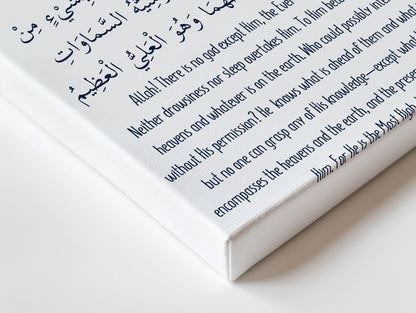 شَيْءٍ مِنْ
السَّمَاوَاتِ
وَهُوَ الْعَلِيُّ الْعَظِيمُ
Allah! There is no god except Him, the Ever
Neither drowsiness nor sleep overtakes Him. To Him belon
heavens and whatever is on the earth. Who could possibly inter
without His permission? He knows what is ahead of them and what
but no one can grasp any of His knowledge—except what
encompasses the heavens and the earth, and the pres
Him. For He is the Most High